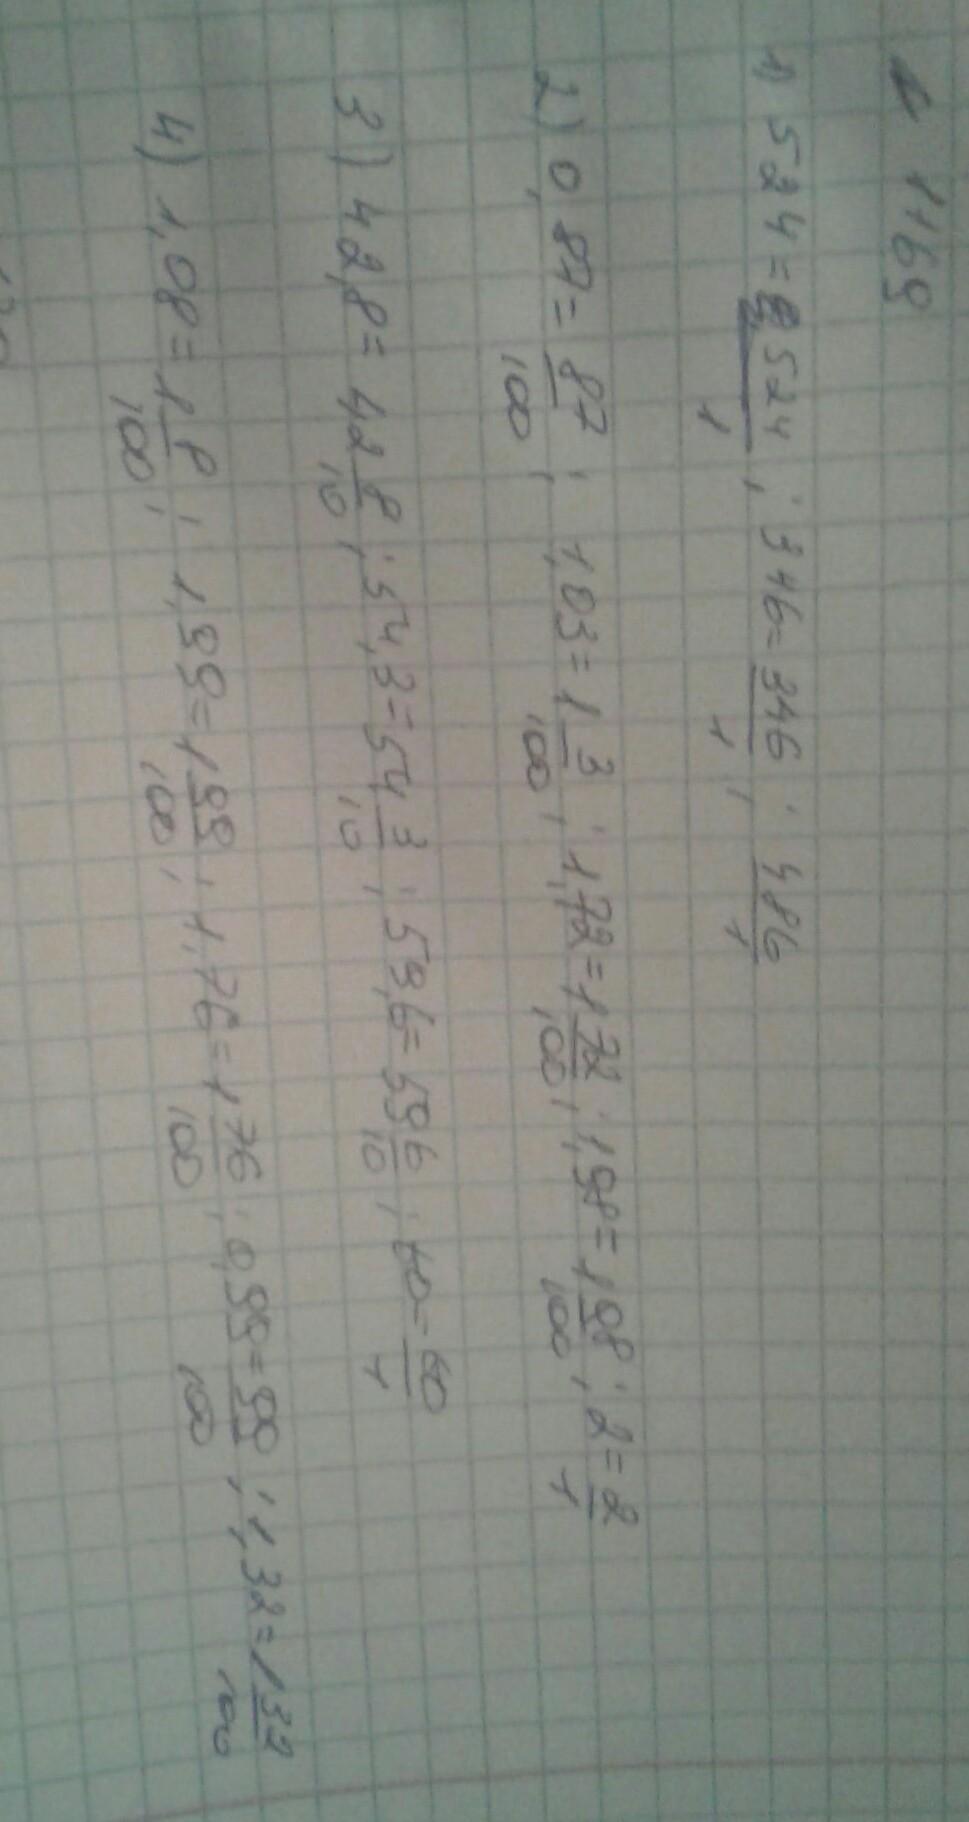 1169
1) 524 = 524/1 ; 346 = 346/1 ; 486/1
2) 0,87 = 87/100 ; 1,03 = 1 3/100 ; 1,72 = 1 72/100 ; 1,98 = 1 98/100 ; 2 = 2/1
3) 42,8 = 42 8/10 ; 54,3 = 54 3/10 ; 59,6 = 59 6/10 ; 60 = 60/1
4) 1,08 = 1 8/100 ; 1,99 = 1 99/100 ; 1,76 = 1 76/100 ; 0,99 = 99/100 ; 1,32 = 1 32/100